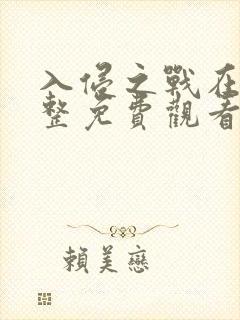 入侵之戰在
整免費觀看
賴美戀